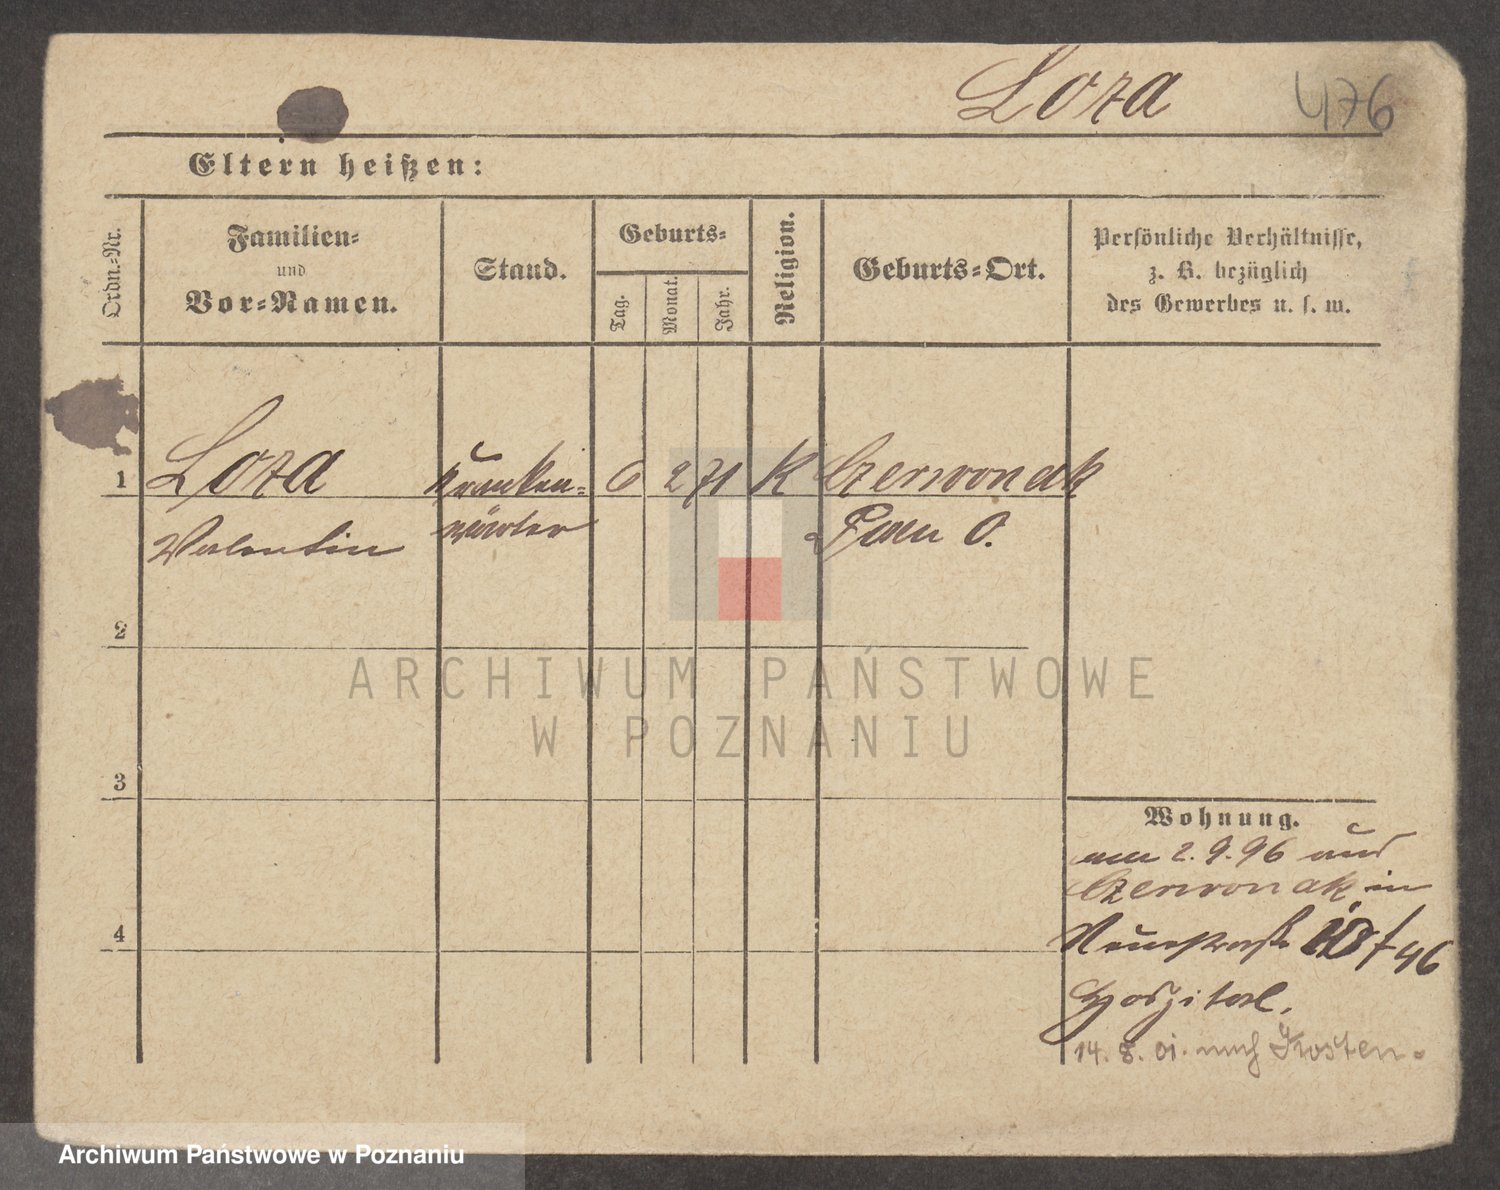 Loza
476
Eltern heißen:
Ordn.-Nr.
Familien-
und
Vor-Namen.
Stand.
Geburts-
Tag.
Monat.
Jahr.
Religion.
Geburts-Ort.
Persönliche Verhältnisse,
z. B. bezüglich
des Gewerbes u. s. w.
1
Loza
Valentin
Kranken-
wärter
6
2
71
K
Czerwonak
Posen O.
2
3
4
Wohnung.
am 2.9.96 aus
Czerwonak in
Neuestraße
Hospital.
14. 8. 01. nach
ARCHIWUM PAŃSTWOWE
W POZNANIU
Archiwum Państwowe w Poznaniu